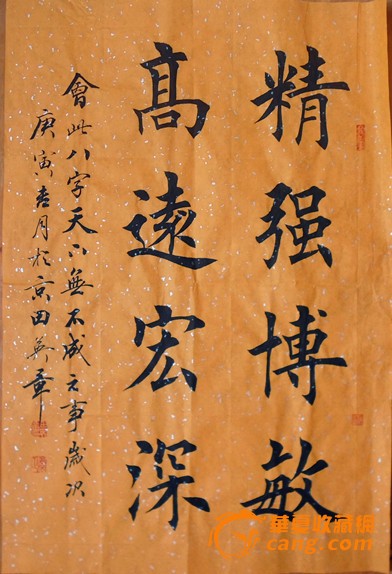 精强博敏
髙遠宏深
會此八字天下無不成之事歲次
庚寅春月於京田英章
華夏收藏網
cang.com